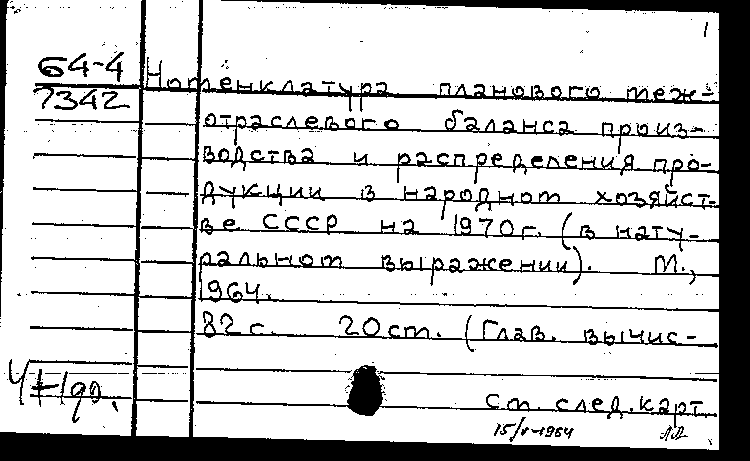 1
64-4
7342
Номенклатура планового меж-
отраслевого баланса произ-
водства и распределения про-
дукции в народном хозяйст-
ве СССР на 1970г. (в нату-
ральном выражении). М.,
1964.
82 с. 20 см. (Глав. вычис-
См. след. карт.
15/V-1964